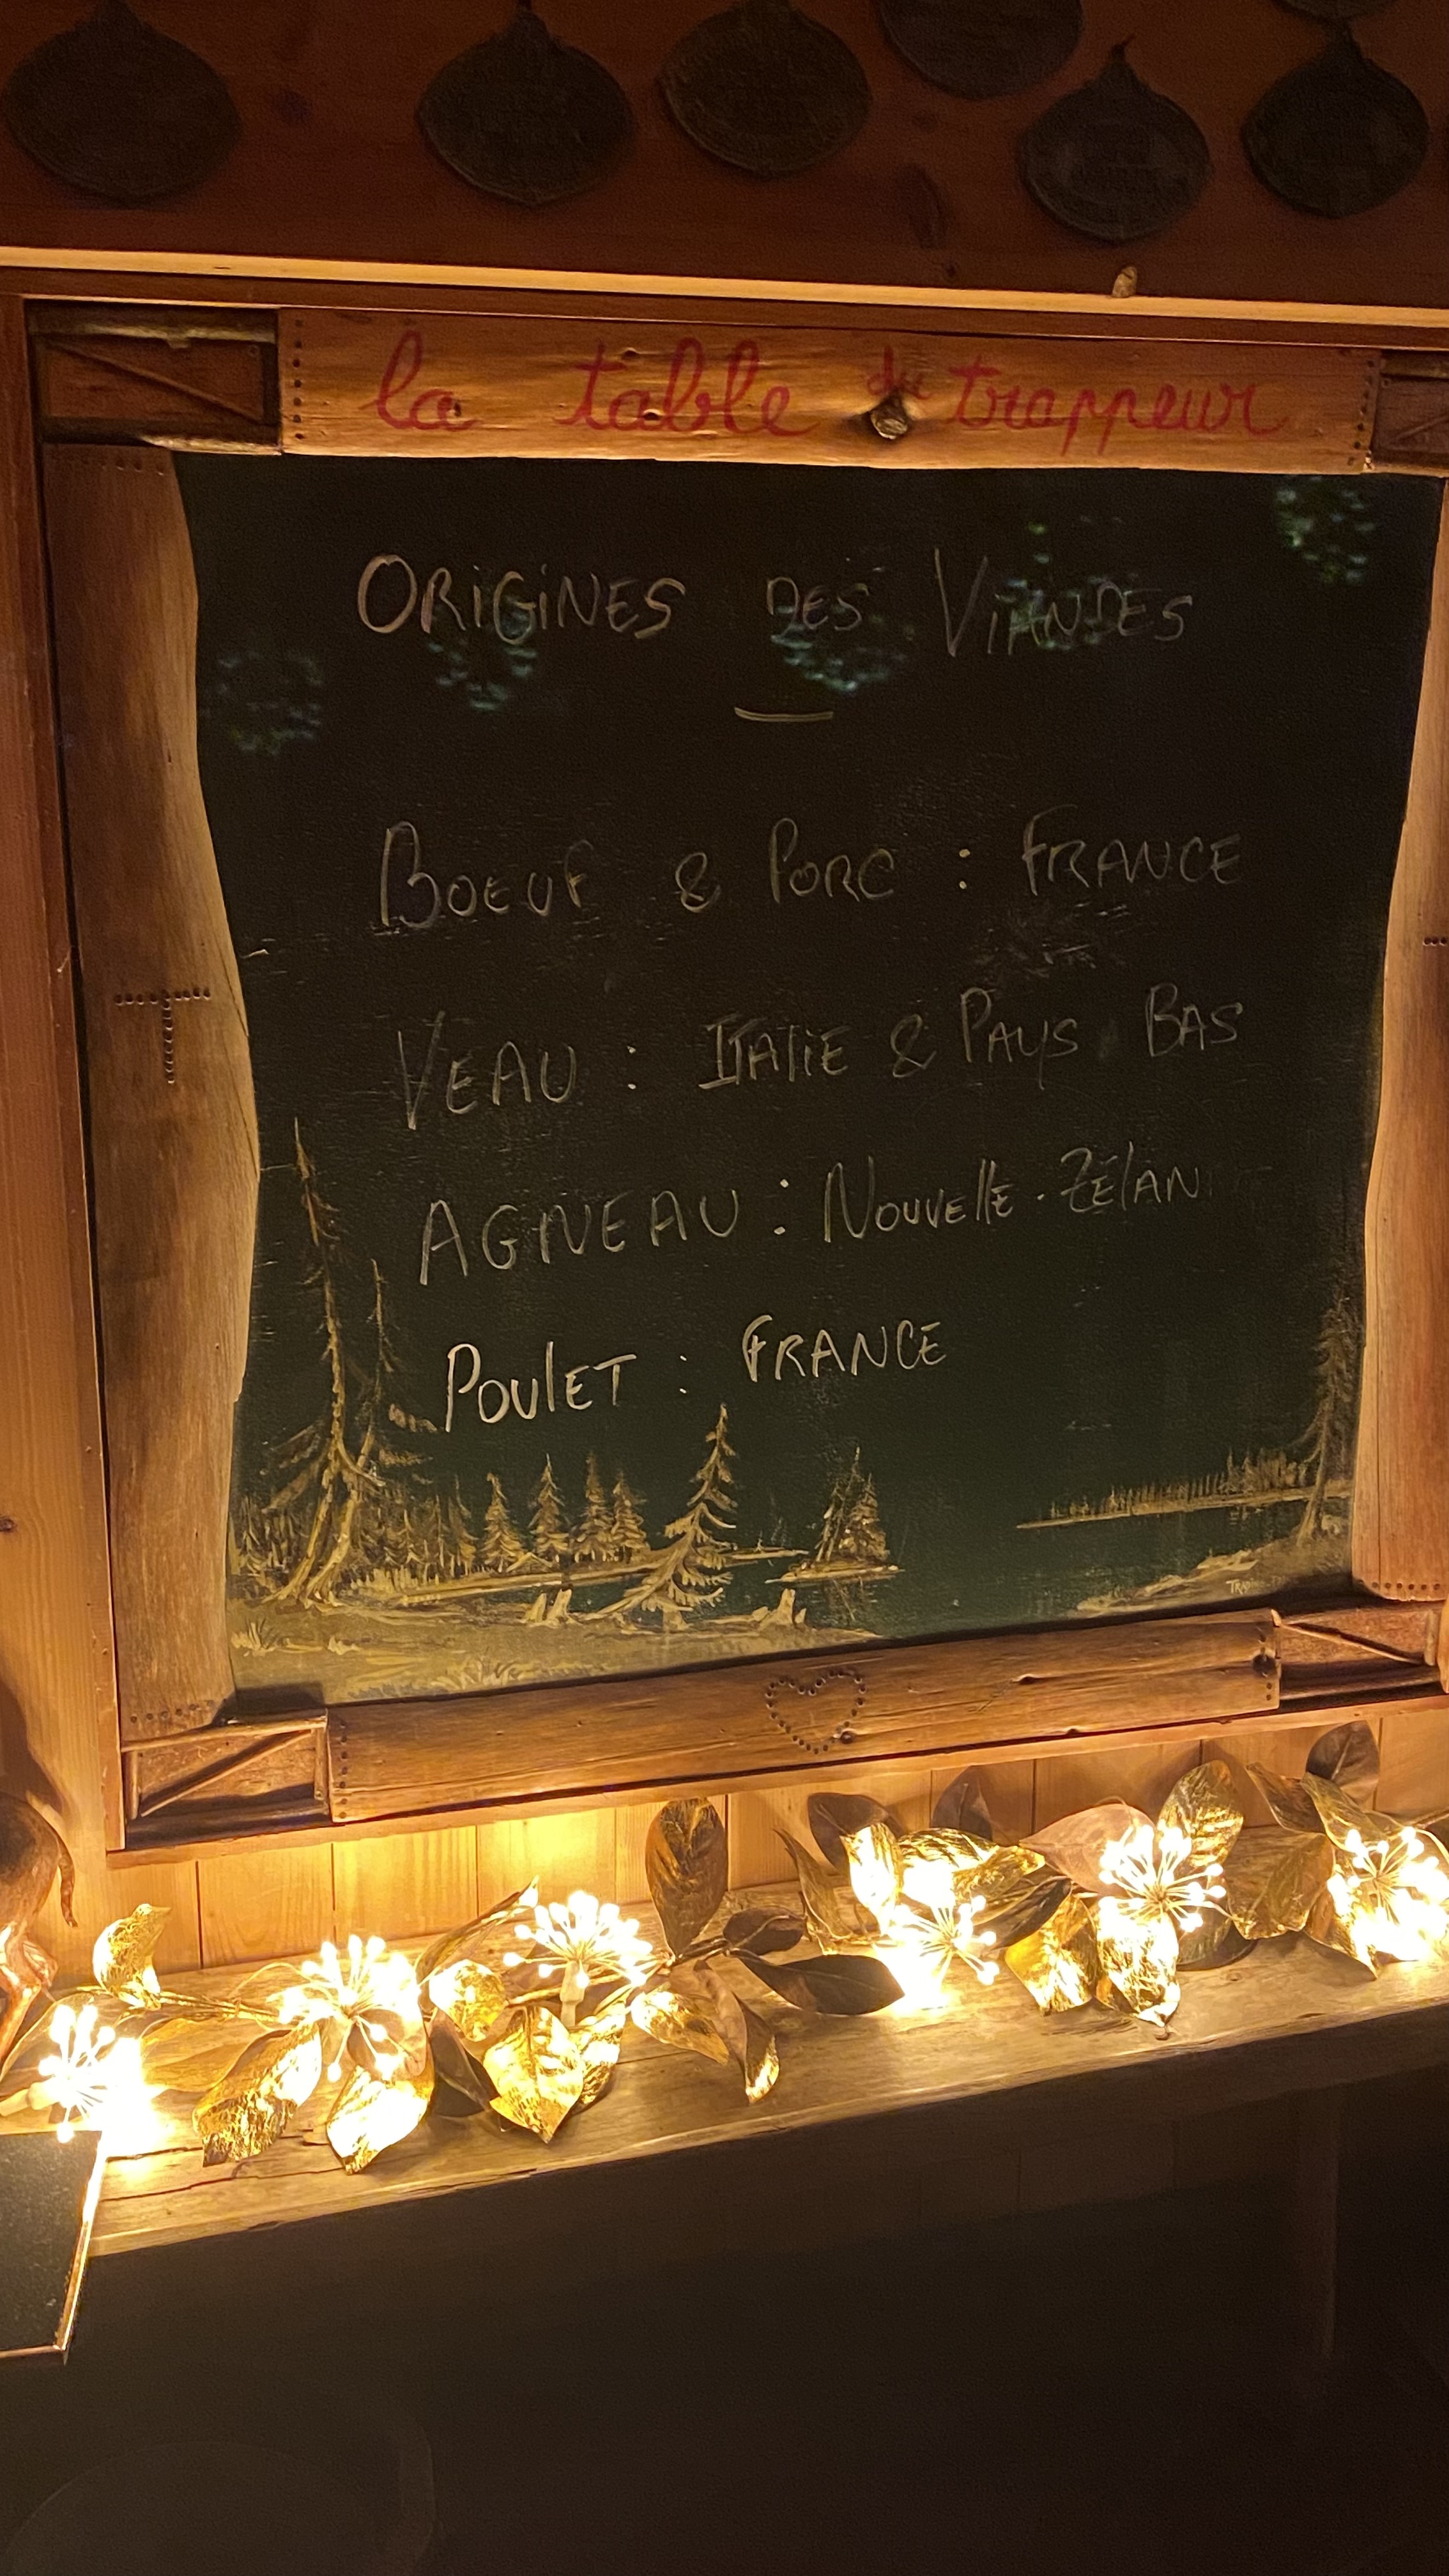 la table du trappeur
ORIGINES DES VIANDES
BOEUF & PORC : FRANCE
VEAU : ITALIE & PAYS BAS
AGNEAU : NOUVELLE-ZÉLAN
POULET : FRANCE
T